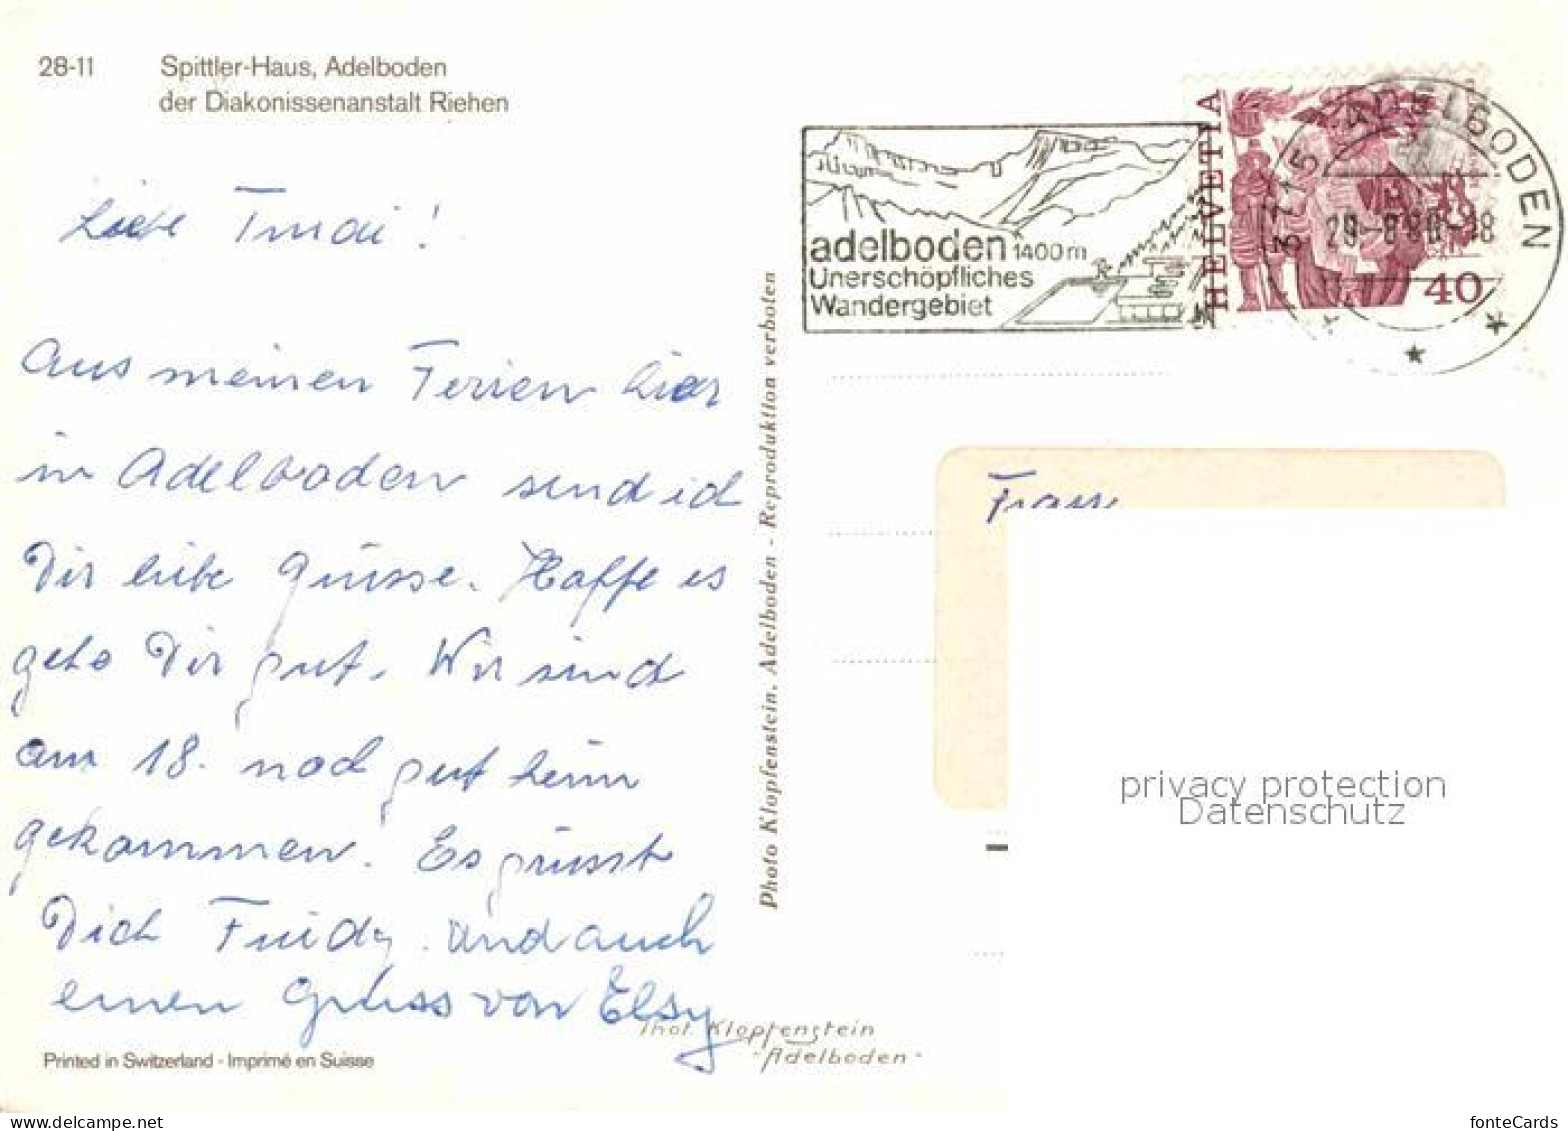 28-11 Spittler-Haus, Adelboden
der Diakonissenanstalt Riehen
Liebe Trudi!
Aus meinen Ferien hier
in Adelboden send ich
Dir liebe Grüsse. Hoffe es
gehe Dir gut. Wir sind
am 18. noch gut heim
gekommen. Es grüsst
Dich Fridy. und auch
einen Gruss von Elsy
Printed in Switzerland - Imprimé en Suisse
Phot. Klopfenstein
-Adelboden-
Photo Klopfenstein, Adelboden - Reproduktion verboten
adelboden 1400m
Unerschöpfliches
Wandergebiet
HELVETIA
40
3715 ADELBODEN
Frau
privacy protection
Datenschutz
www.delcampe.net
fonteCards